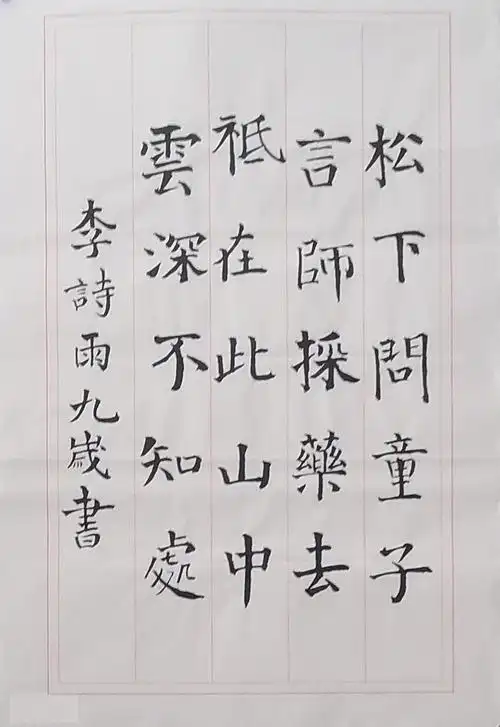 松下問童子
言師採藥去
祗在此山中
雲深不知處
李詩雨九歲書